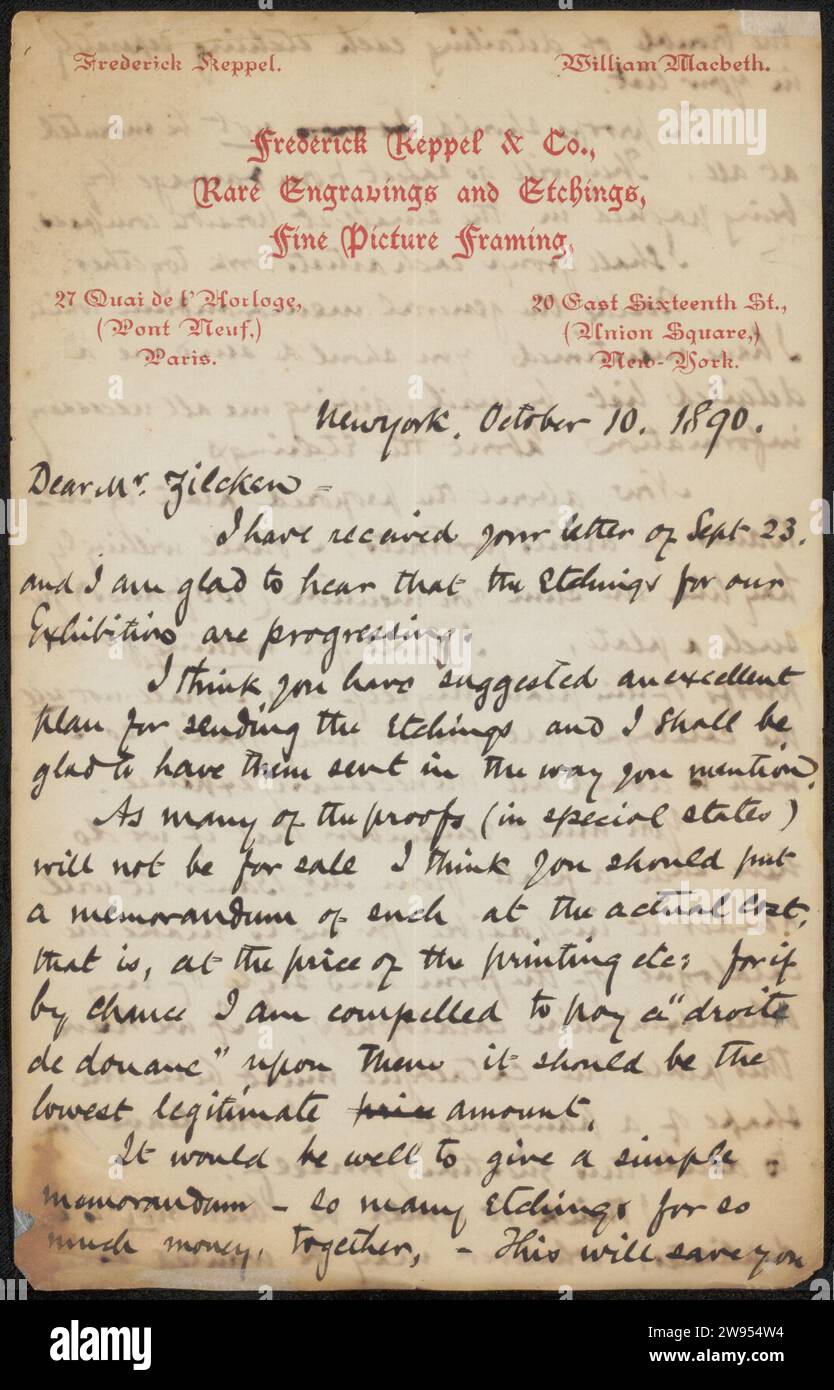 Frederick Keppel.
William Macbeth.
Frederick Keppel & Co.,
Rare Engravings and Etchings,
Fine Picture Framing,
27 Quai de l'Horloge,
(Pont Neuf,)
Paris.
20 East Sixteenth St.,
(Union Square,)
New-York.
New york, October 10. 1890.
Dear Mr. Zilcken –
I have received your letter of Sept 23.
and I am glad to hear that the Etchings for our
Exhibition are progressing.
I think you have suggested an excellent
plan for sending the Etchings and I shall be
glad to have them sent in the way you mention.
As many of the proofs (in special states)
will not be for sale I think you should put
a memorandum of such at the actual cost,
that is, at the price of the printing etc: for if
by chance I am compelled to pay a "droite
de douane" upon them it should be the
lowest legitimate price amount,
It would be well to give a simple
memorandum – so many Etchings for so
much money, together, – This will save you
alamy
Image ID: 2W954W4
www.alamy.com